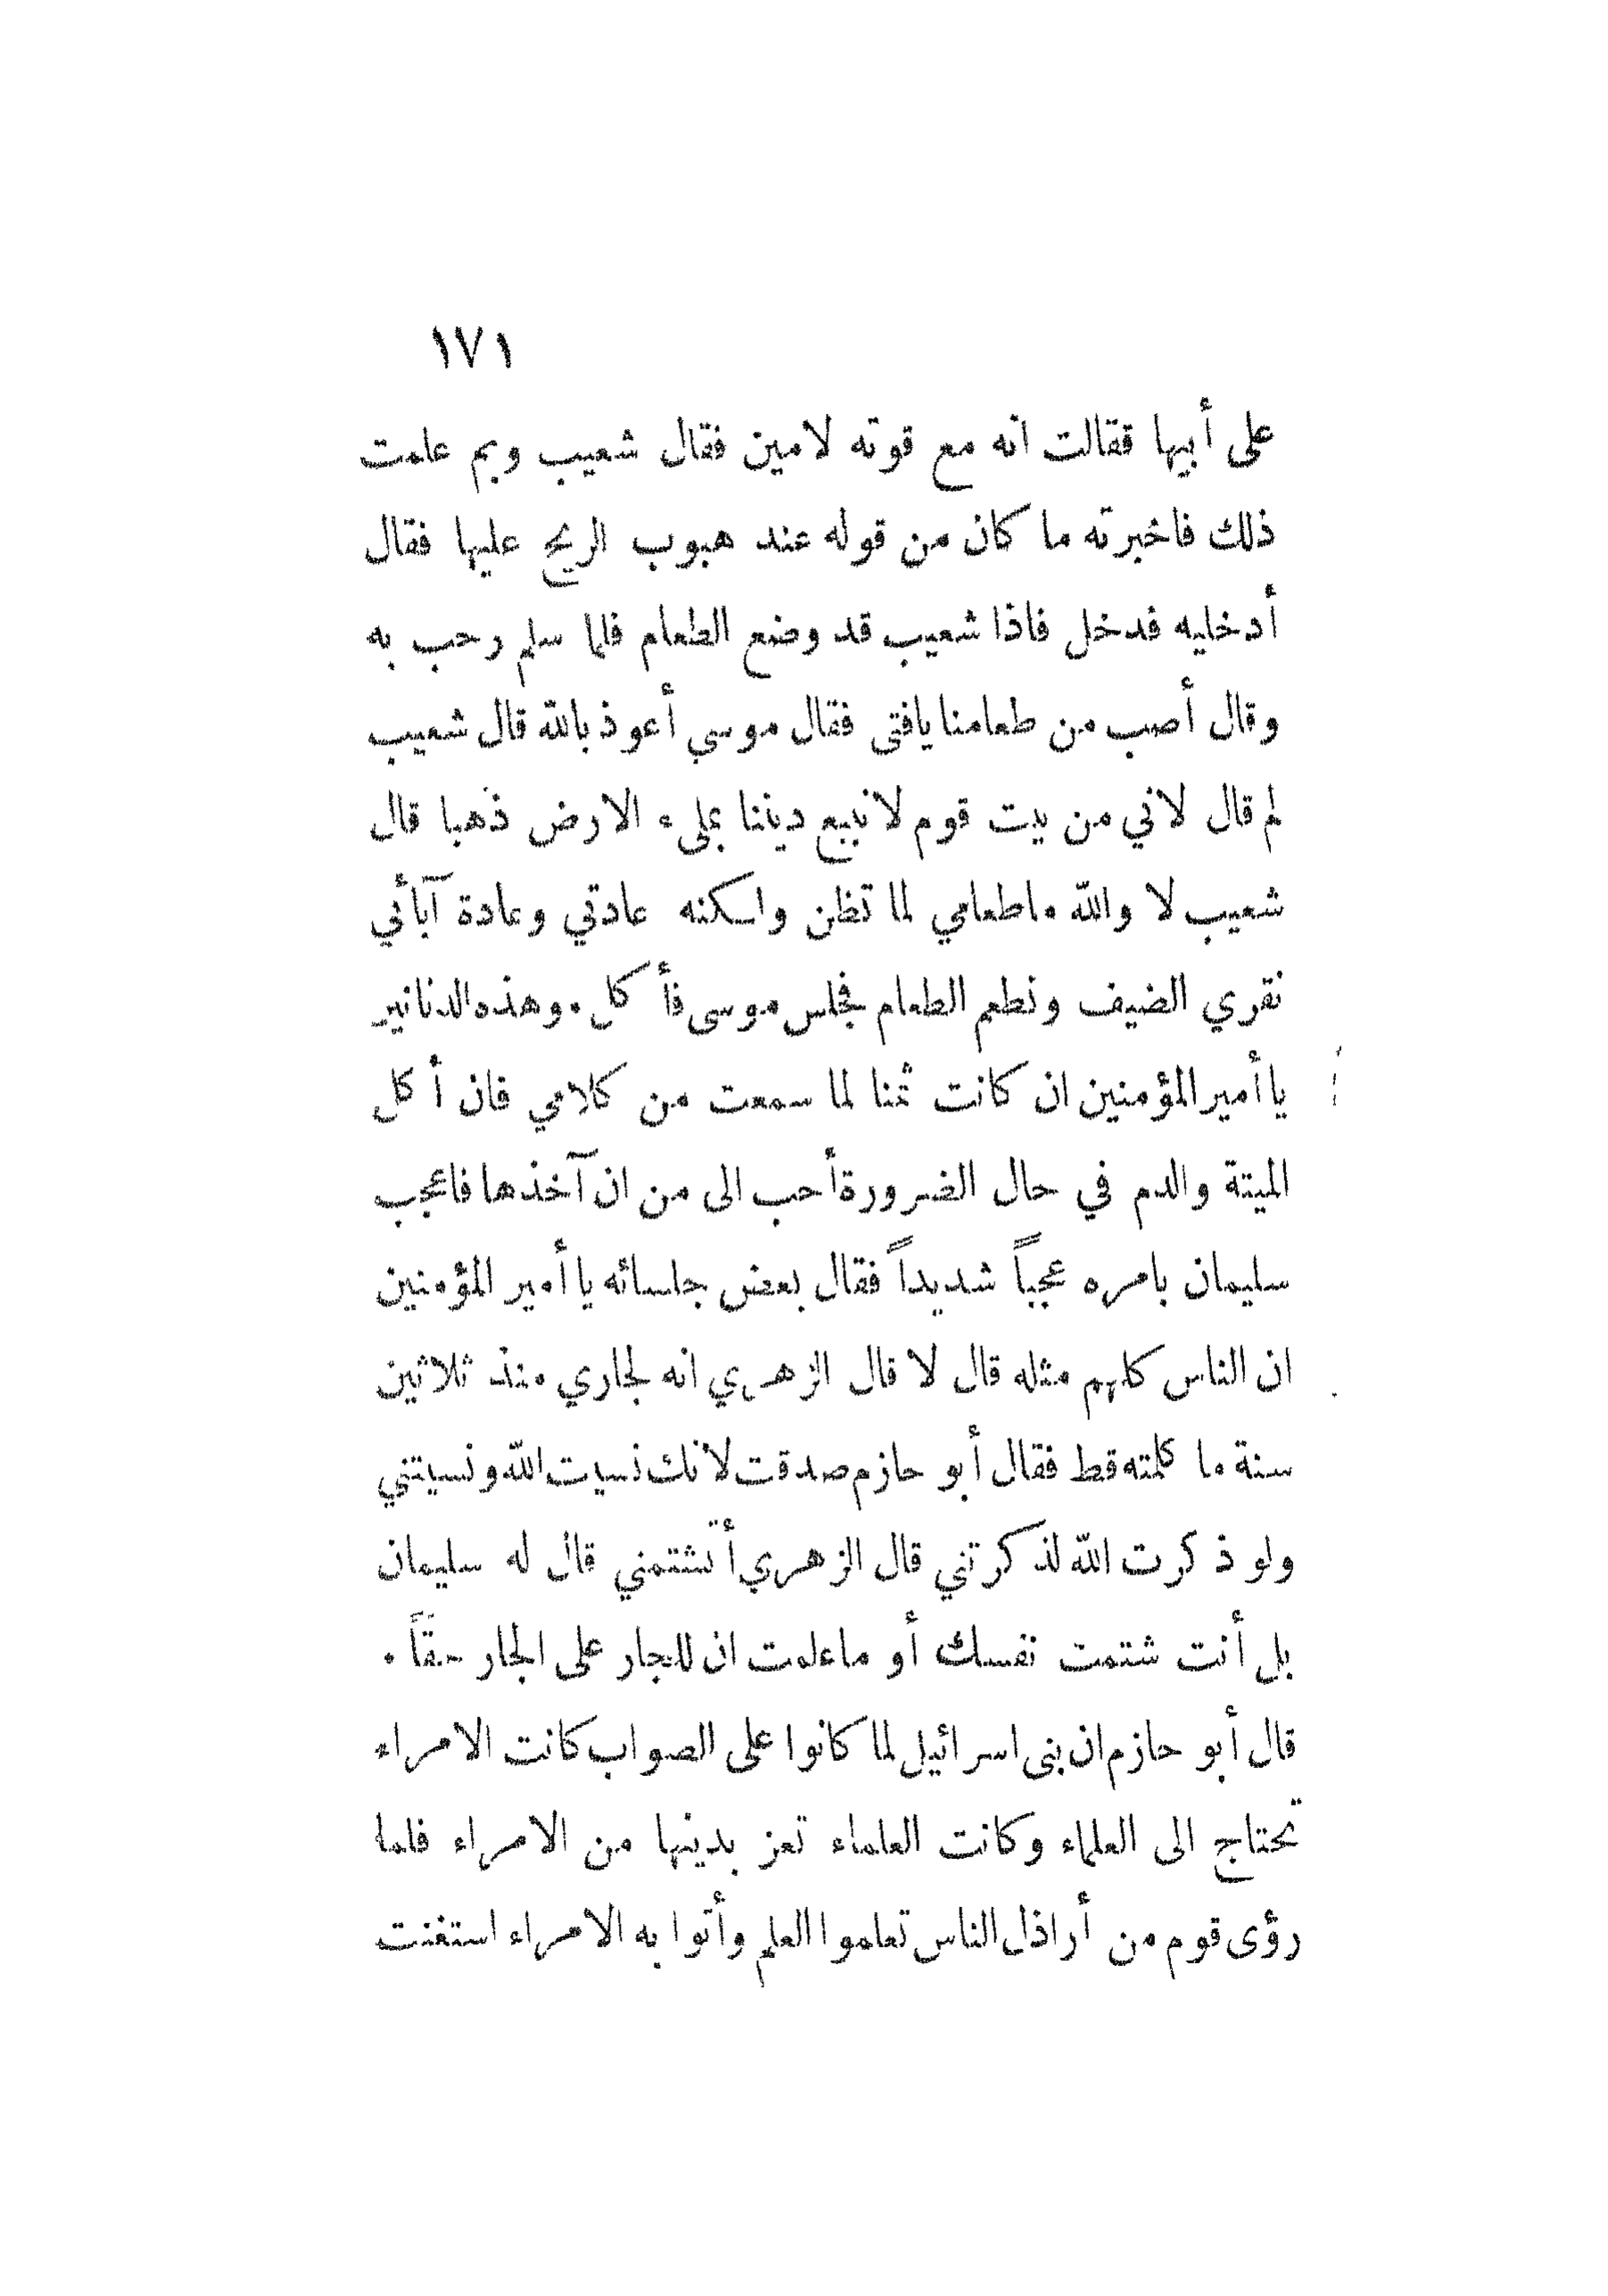 ١٧١
على أبيها فقالت انه مع قوته لامين فقال شعيب وبم علمت
ذلك فاخبرته ما كان من قوله عند هبوب الريح عليها فقال
أدخليه فدخل فاذا شعيب قد وضع الطعام فلما سلم رحب به
وقال أصب من طعامنا يافتى فقال موسي أعوذ بالله قال شعيب
لم قال لاني من بيت قوم لا نبيع ديننا بملىء الارض ذهبا قال
شعيب لا والله ماطعامي لما تظن واسكنه عادتي وعادة آبأئي
نقري الضيف ونطعم الطعام فجلس موسى فأ كل . وهذه الدنانير
يا أمير المؤمنين ان كانت ثمنا لما سمعت من كلامي فان أ كل
الميتة والدم في حال الضرورة أحب الى من ان آخذها فاعجب
سليمان بامره عجباً شديداً فقال بعض جلسائه يا أمير المؤمنين
ان الناس كلهم مثله قال لا قال الزهري انه لجاري منذ ثلاثين
سنة ما كلمته قط فقال أبو حازم صدقت لانك نسيت الله ونسيتني
ولو ذ كرت الله لذ كرتني قال الزهري أتشتمني قال له سليمان
بل أنت شتمت نفسك أو ماعلمت ان للجار على الجار حقاً .
قال أبو حازم ان بنى اسرائيل لما كانوا على الصواب كانت الامراء
تحتاج الى العلماء وكانت العلماء تعز بدينها من الامراء فلما
رؤى قوم من أراذل الناس تعلموا العلم وأتوا به الامراء استغنت